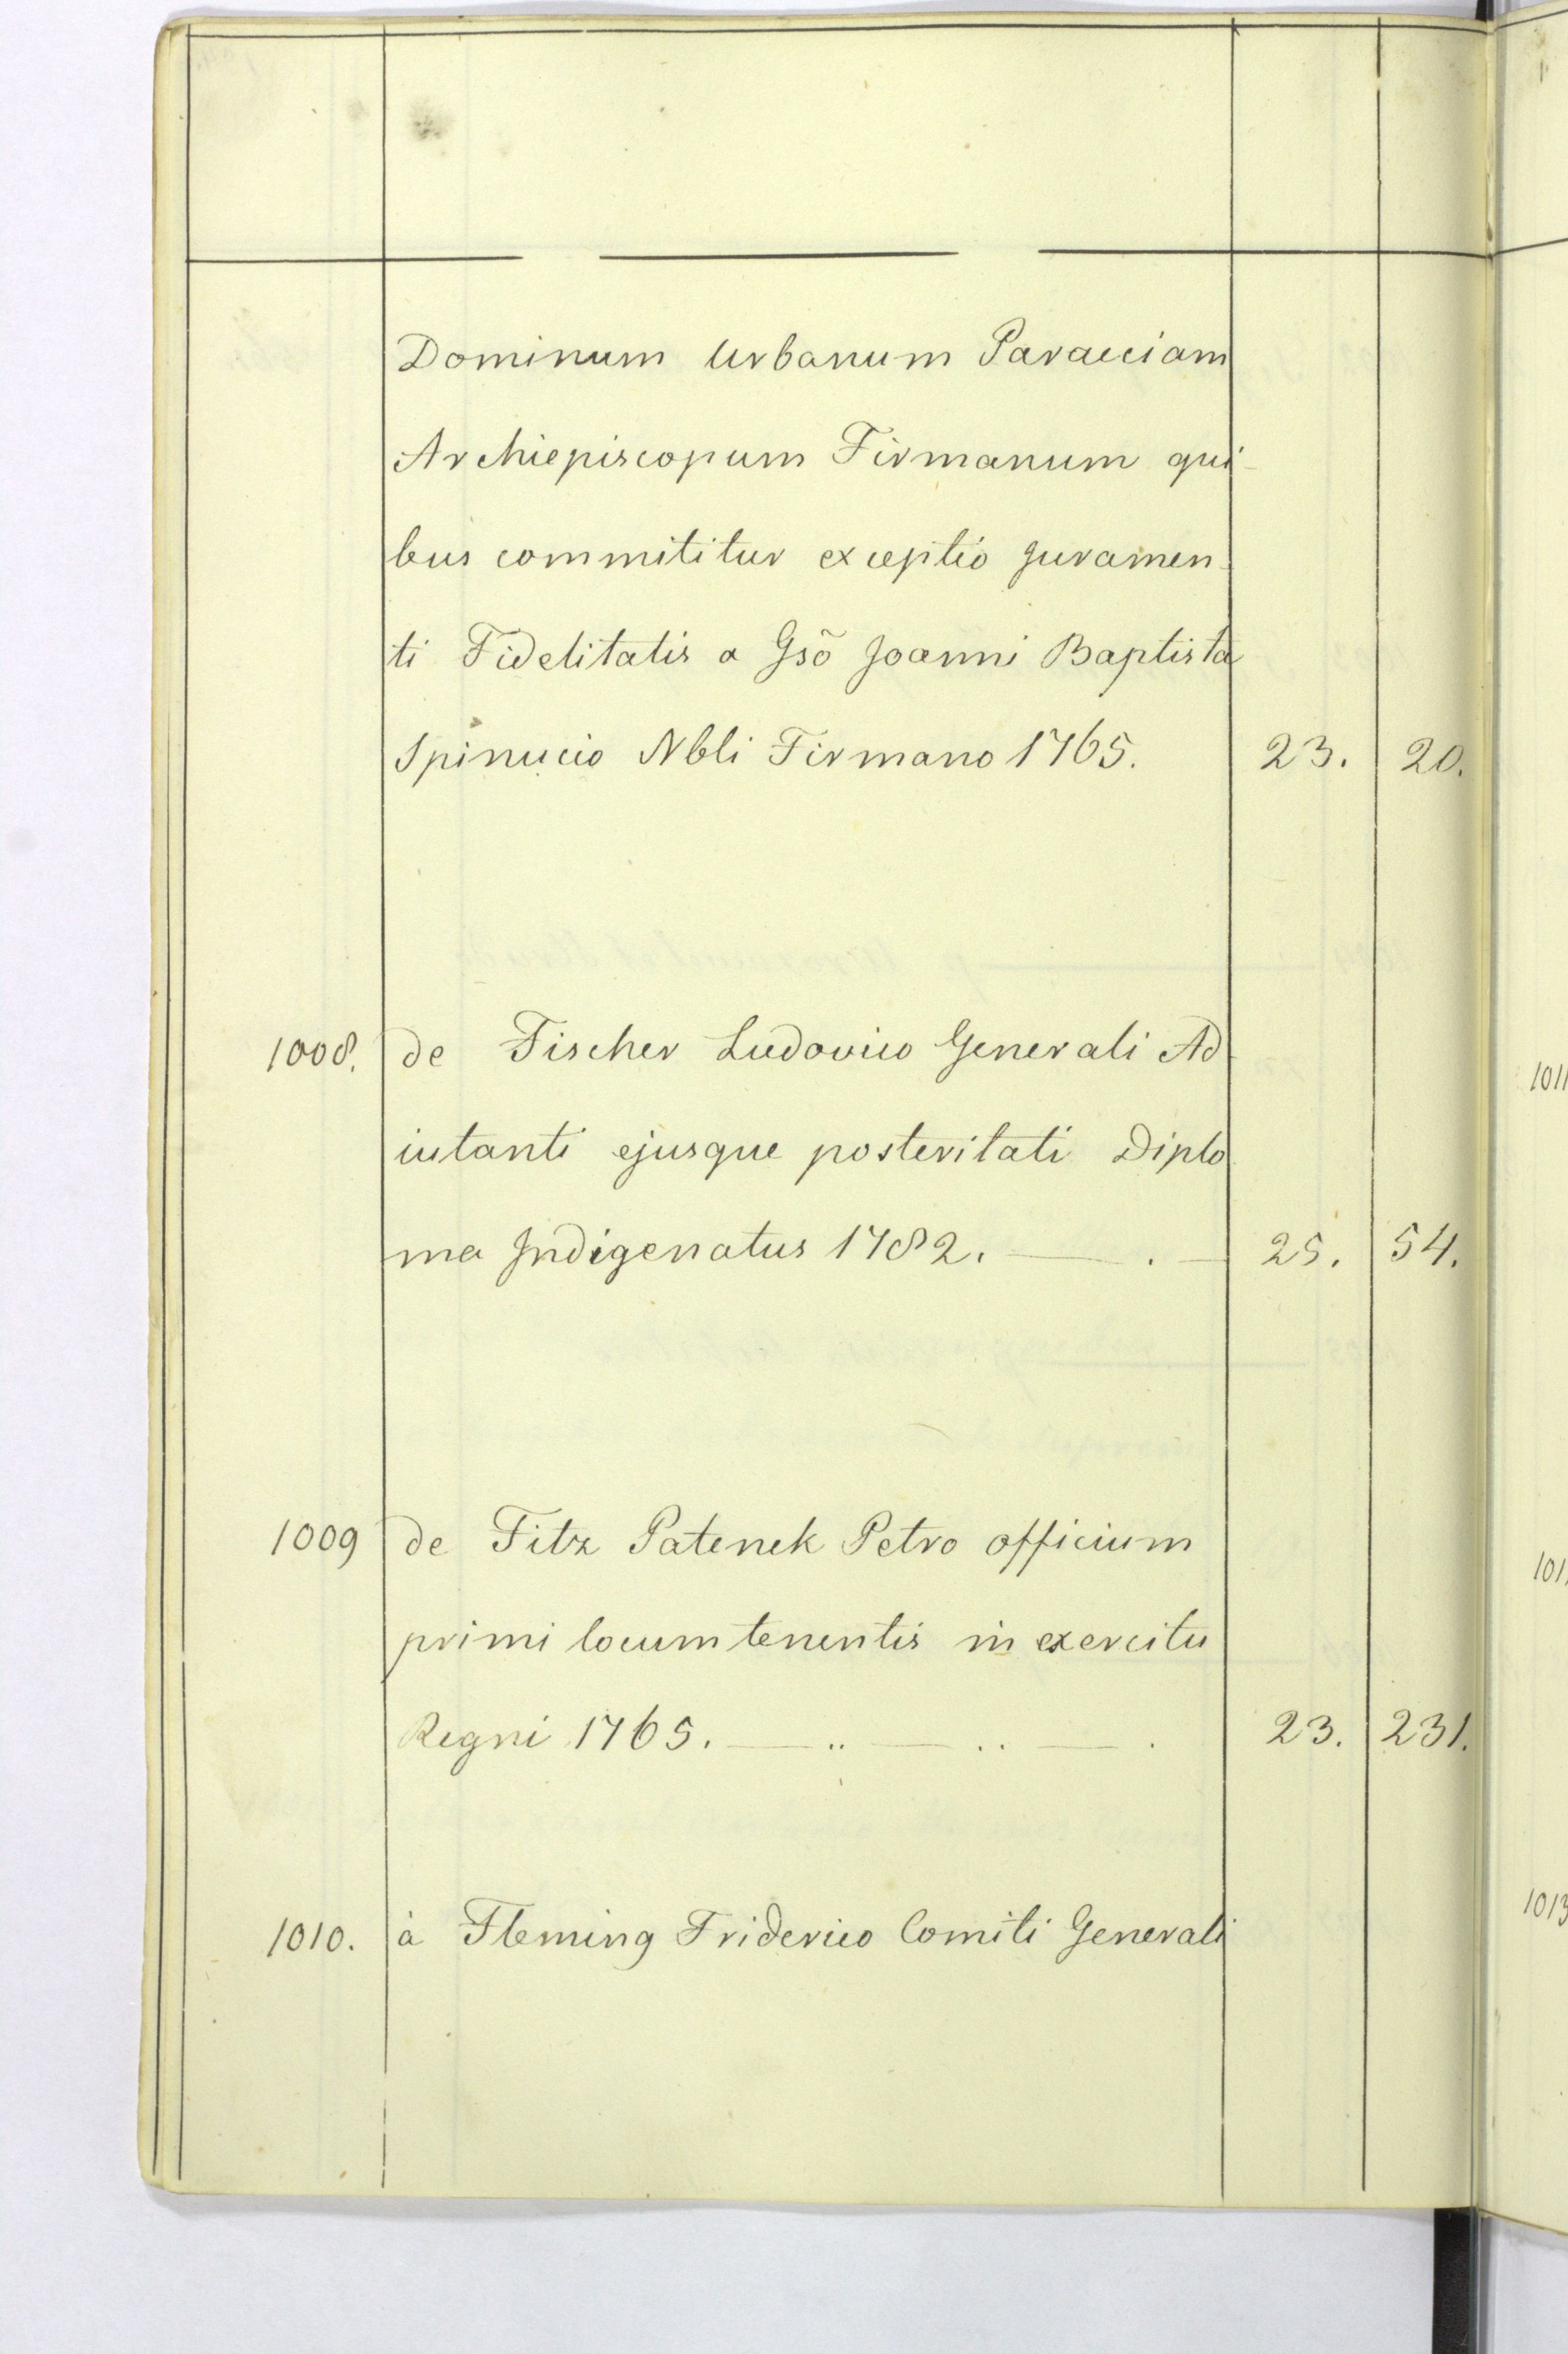 Dominum Urbanum Paracciam
Archiepiscopum Firmanum qui-
bus commititur exceptio juramen-
ti Fidelitatis a Gsõ Joanni Baptista
Spinucio Nbli Firmano 1765. 23. 20.
1008. de Fischer Ludovico Generali Ad-
iutanti ejusque posteritati Diplo
ma Indigenatus 1782. — . — 25. 54.
1009 de Fitz Patenek Petro officium
primi locumtenentis in exercitu
Regni 1765. — .. — .. — . 23. 231.
1010. à Fleming Friderico Comiti Generali
1011
101
1013